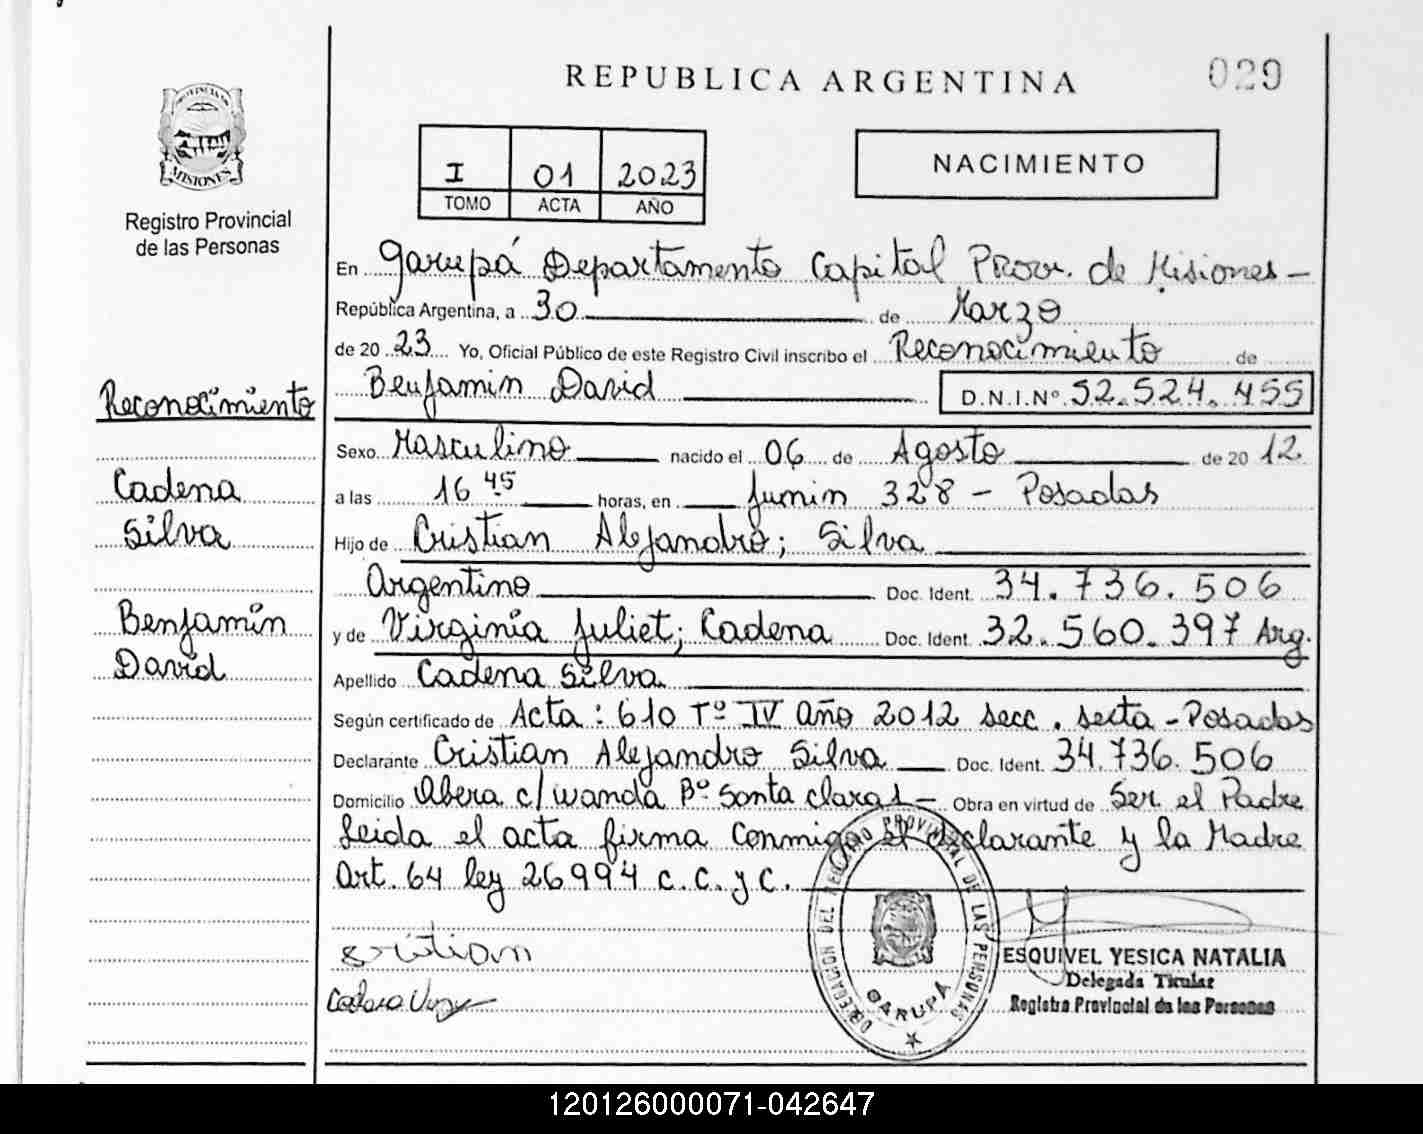 REPUBLICA ARGENTINA
029
PROVINCIA DE
MISIONES
Registro Provincial
de las Personas
I 01 2023
TOMO ACTA AÑO
NACIMIENTO
En Garupá Departamento Capital Prov. de Misiones -
República Argentina, a 30 de Marzo
de 20 23 Yo, Oficial Público de este Registro Civil inscribo el Reconocimiento de
Benjamin David D.N.I.Nº 52.524.455
Reconocimiento
Cadena
Silva
Benjamín
David
Sexo Masculino nacido el 06 de Agosto de 20 12
a las 16 45 horas, en Junin 328 - Posadas
Hijo de Cristian Alejandro; Silva
Argentino Doc. Ident. 34.736.506
y de Virginia Juliet; Cadena Doc. Ident. 32.560.397 Arg.
Apellido Cadena Silva
Según certificado de Acta: 610 Tº IV año 2012 secc. sexta - Posadas
Declarante Cristian Alejandro Silva Doc. Ident. 34.736.506
Domicilio Obera c/ wanda Bº Santa claras - Obra en virtud de Ser el Padre
Leida el acta firma conmigo el declarante y la Madre
Art. 64 ley 26994 c.c. y c.
DELEGACION DEL REGISTRO PROVINCIAL DE LAS PERSONAS
GARUPÁ
ESQUIVEL YESICA NATALIA
Delegada Titular
Registro Provincial de las Personas
120126000071-042647